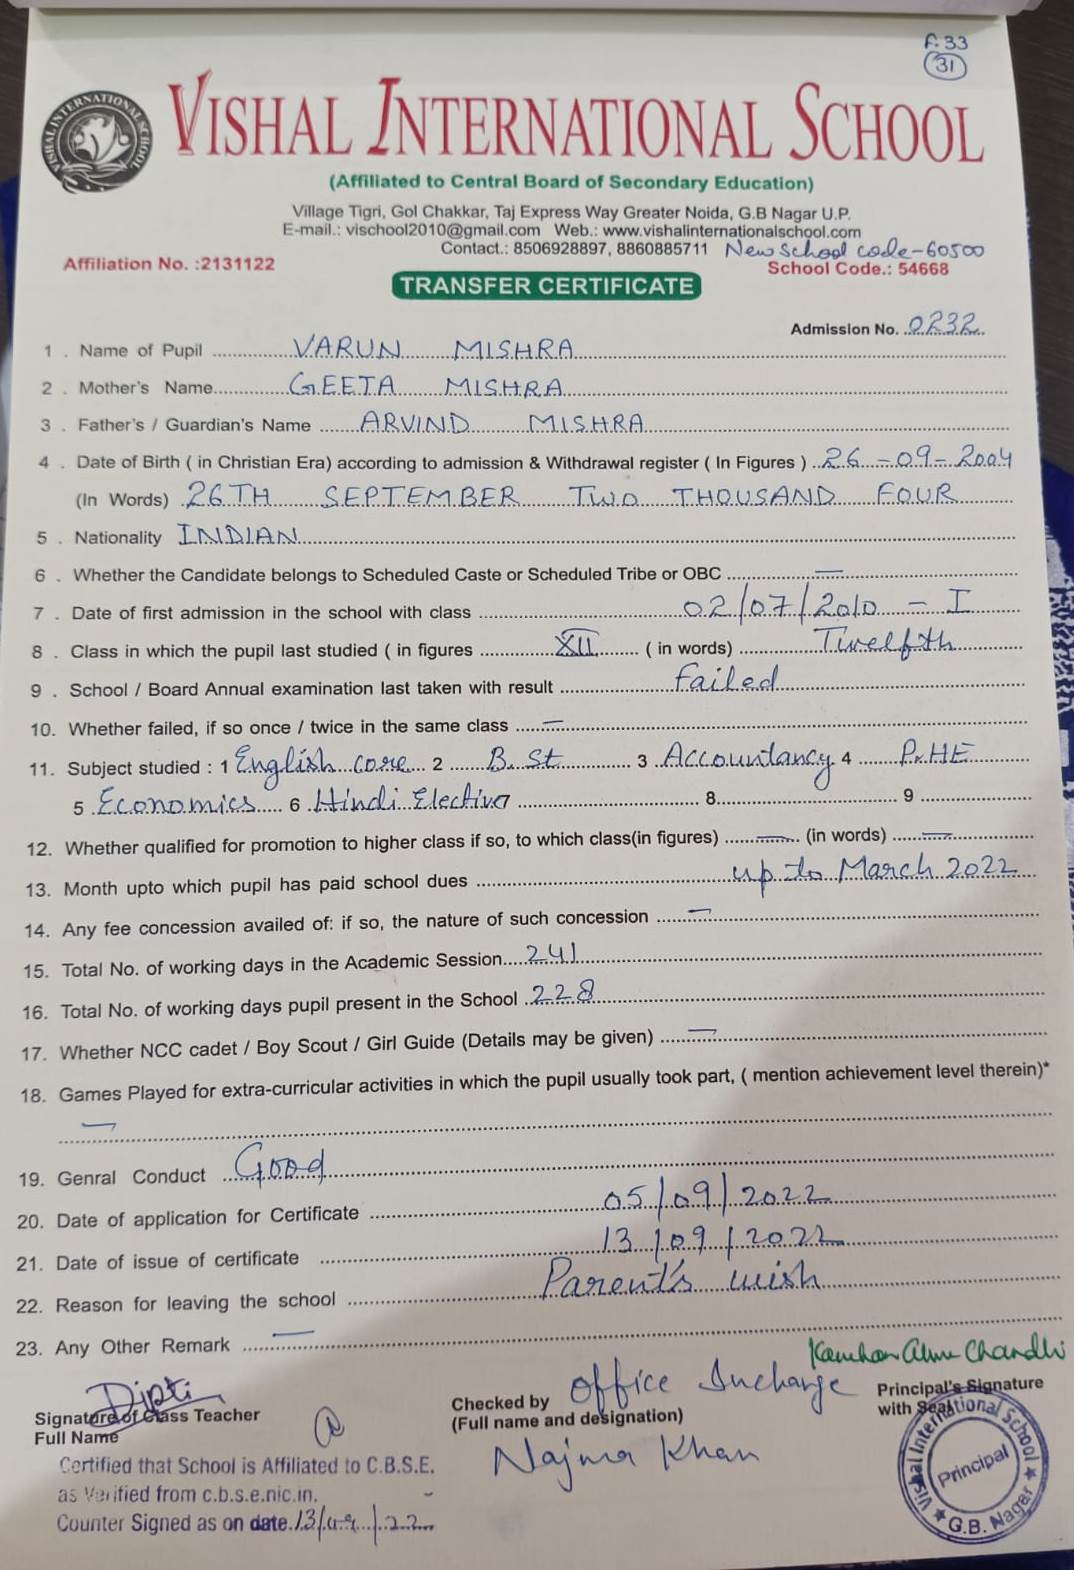 F. 33
31
VISHAL INTERNATIONAL SCHOOL
VISHAL INTERNATIONAL SCHOOL
(Affiliated to Central Board of Secondary Education)
Village Tigri, Gol Chakkar, Taj Express Way Greater Noida, G.B Nagar U.P.
E-mail.: vischool2010@gmail.com Web.: www.vishalinternationalschool.com
Contact.: 8506928897, 8860885711 New School code-60500
Affiliation No. :2131122 School Code.: 54668
TRANSFER CERTIFICATE
Admission No. 0232
1 . Name of Pupil VARUN MISHRA
2 . Mother's Name GEETA MISHRA
3 . Father's / Guardian's Name ARVIND MISHRA
4 . Date of Birth ( in Christian Era) according to admission & Withdrawal register ( In Figures ) 26-09-2004
(In Words) 26TH SEPTEMBER TWO THOUSAND FOUR
5 . Nationality INDIAN
6 . Whether the Candidate belongs to Scheduled Caste or Scheduled Tribe or OBC —
7 . Date of first admission in the school with class 02/07/2010 - I
8 . Class in which the pupil last studied ( in figures XII ( in words) Twelfth
9 . School / Board Annual examination last taken with result Failed
10. Whether failed, if so once / twice in the same class —
11. Subject studied : 1 English core 2 B. St 3 Accountancy 4 P.HE
5 Economics 6 Hindi Elective 7 8 9
12. Whether qualified for promotion to higher class if so, to which class(in figures) — (in words) —
13. Month upto which pupil has paid school dues up to March 2022
14. Any fee concession availed of: if so, the nature of such concession —
15. Total No. of working days in the Academic Session 241
16. Total No. of working days pupil present in the School 228
17. Whether NCC cadet / Boy Scout / Girl Guide (Details may be given) —
18. Games Played for extra-curricular activities in which the pupil usually took part, ( mention achievement level therein)*
—
19. Genral Conduct Good
20. Date of application for Certificate 05/09/2022
21. Date of issue of certificate 13/09/2022
22. Reason for leaving the school Parent's wish
23. Any Other Remark —
Dipti
Signature of Class Teacher
Full Name
Checked by Office Incharge
(Full name and designation)
Najma Khan
Principal's Signature
with Seal
Vishal International School
Principal
G.B. Nagar
Certified that School is Affiliated to C.B.S.E.
as Verified from c.b.s.e.nic.in.
Counter Signed as on date. 13/09/22